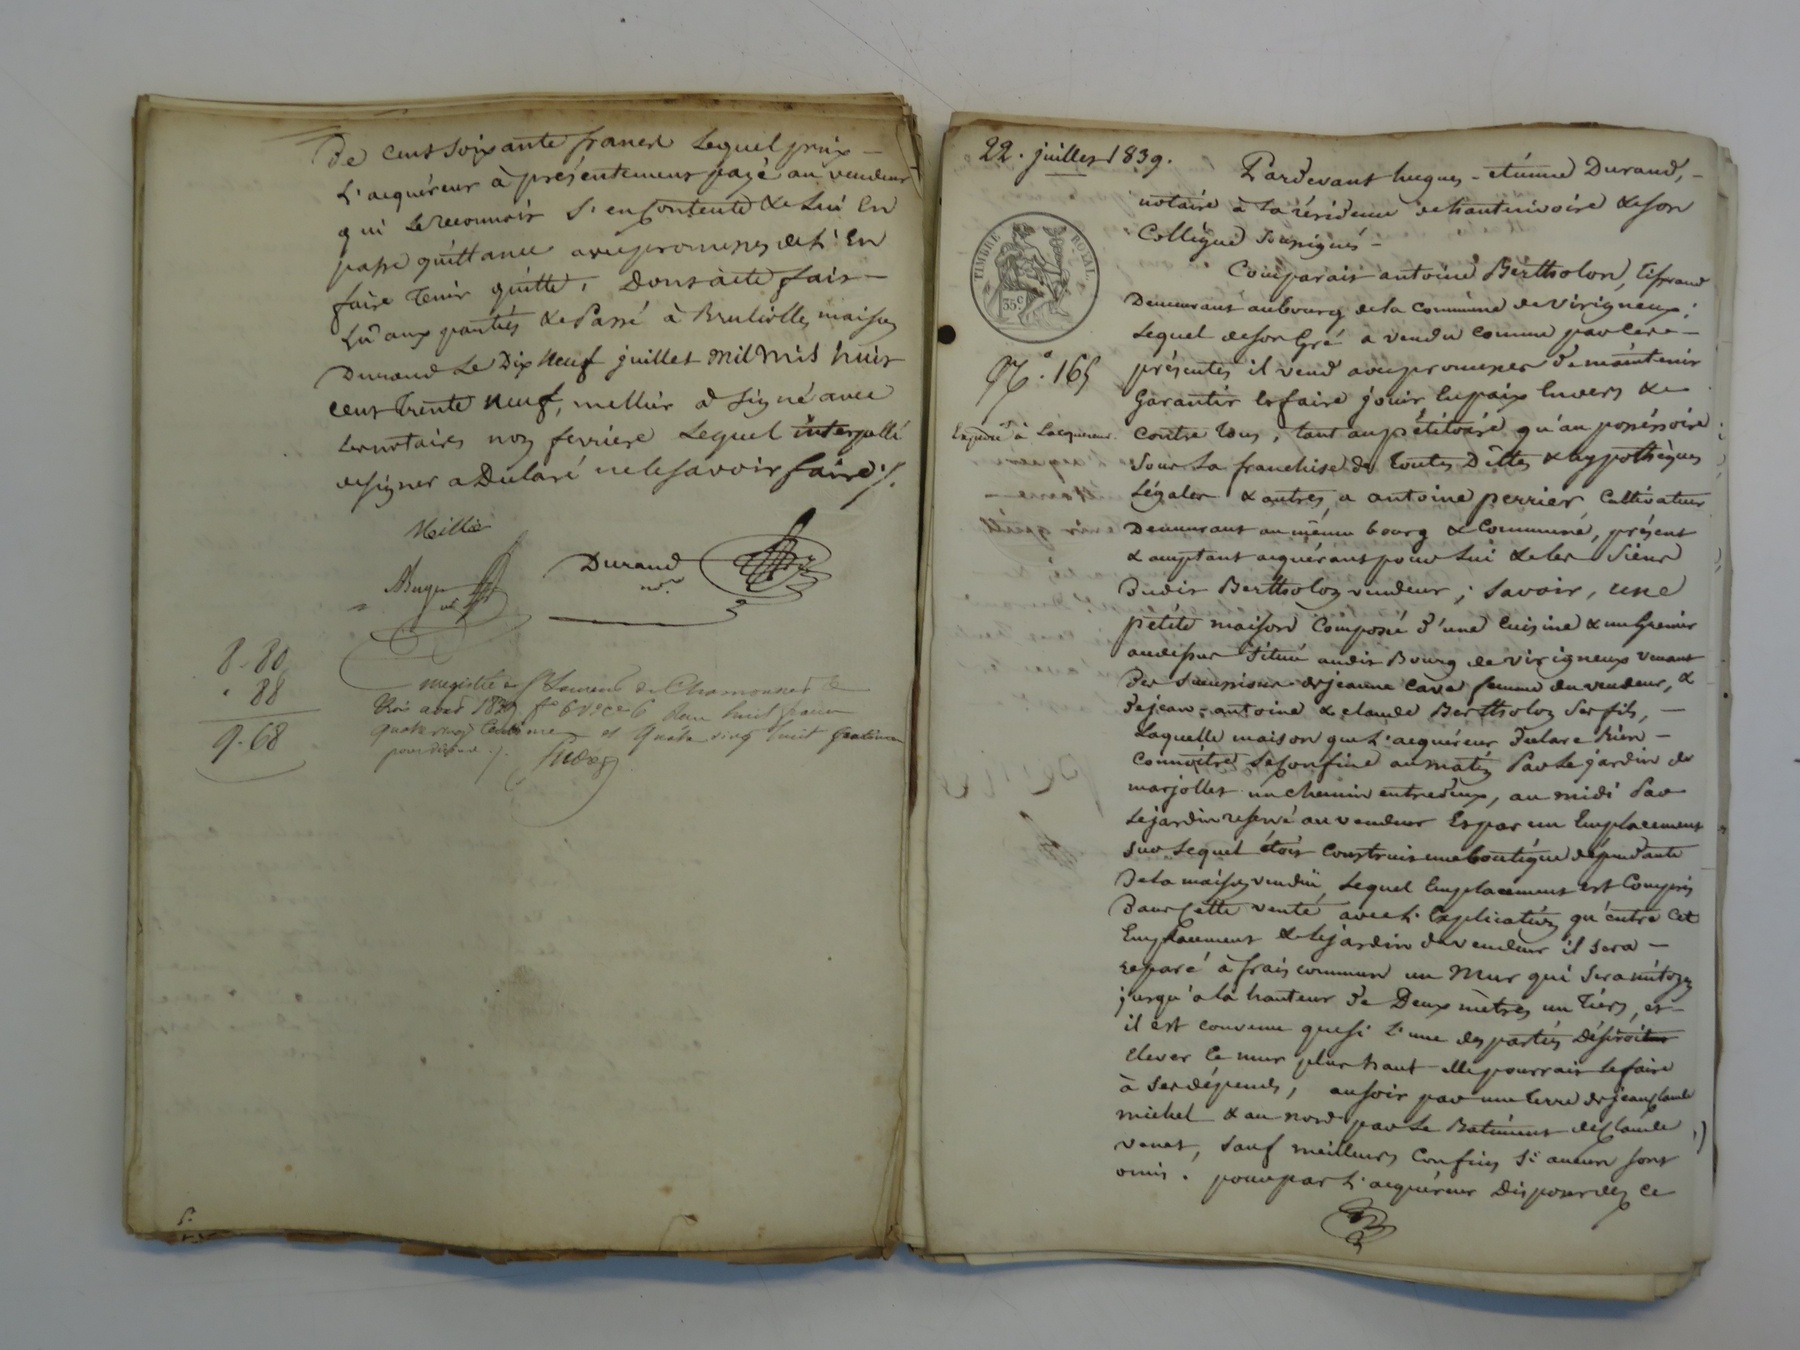 De cent soixante francs Lequel prix –
L'acquéreur à présentement payé au vendeur
qui Le reconnoit s'en contente & Lui En
passe quittance avec promesses de L'En
faire tenir quitte, Dont acte fait –
Lû aux parties & Passé à Brulliolles maison
Durand Le Dix Neuf juillet Mil Mil huit
cent Trente Neuf, mellier a signé avec
Les notaires non fevriere Lequel interpellé
de signer a Déclaré ne le savoir faire ./.
Mellier
Durand
nre
8-80
. 88
9-68
Enregistré à St Laurent de Chamousset le
août 1839 fo 6 Vo Ce 6 Reçu huit francs
quatre vingt Centimes et Quatre vingt huit Centimes
pour décime ./.
22. juillet 1839.
Pardevant hugues-etienne Durand, –
notaire à La résidence de hauterivoire & son
Collègue Soussignés –
Comparait antoine Bertholon, Tisserand
Demeurant au bourg de la Commune de Virigneux;
Lequel de son Gré a vendu comme par Ces –
présentes il vend avec promesses De maintenir
Garantir & faire jouir En paix Envers &
Contre tous, tant au pétitoire qu'au posséssoire
Sous La franchise de toutes Dêttes & hypothèques
Légales & autres, a antoine perrier Cultivateur
Demeurant au même bourg & Commune, présent
& acceptant acquérant pour Lui & les Siens
Dudit Bertholon vendeur; Savoir, une
petite maison Composée D'une Cuisine & un Grenier
audessus Située audit Bourg de Virigneux venant
Des Successions de jeanne Cave femme du vendeur, &
De jean-antoine & claude Bertholon Ses fils, –
Laquelle maison que L'acquéreur Déclare bien –
Connoître Se Confine au matin Par Le jardin de
marjollet un chemin entredeux, au midi Par
Le jardin reservé au vendeur Et par un Emplacement
sur Lequel étoit Construit une boutique dépendante
De la maison vendüe, Lequel Emplacement est Compris
Dans Cette vente avec L'Explication qu'entre Cet
Emplacement & Le jardin du vendeur il sera –
reparé à frais communs un Mur qui sera mitoyen
jusqu'a la hauteur De Deux mètres un Tiers, et –
il est convenu que si L'une des parties Désiroit
élever le mur plus haut elle pourrait le faire
à ses dépens, au soir par une terre de jean claude
michel & au nord par Le Batiment de Claude
venet, sauf meilleurs Confins Si aucun sont
omis. pour par L'acquéreur Disposer de Ce
TIMBRE ROYAL.
35c
No. 165
Expédié à Lacquereur.